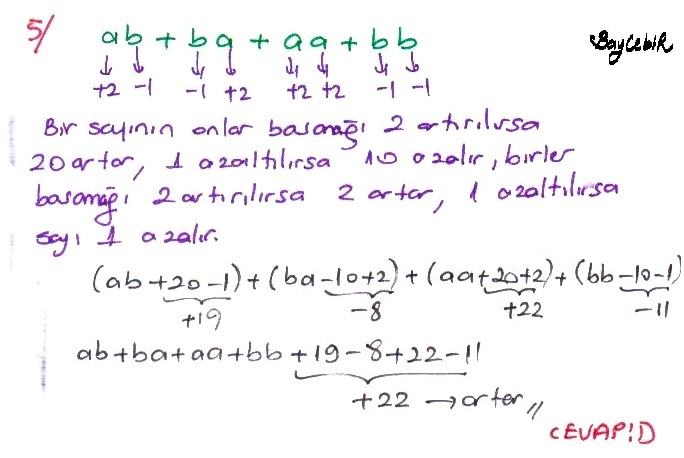 5/ ab + ba + aa + bb BayCebiR
+2 -1 -1 +2 +2 +2 -1 -1
Bir sayının onlar basamağı 2 artırılırsa
20 artar, 1 azaltılırsa 10 azalır, birler
basamağı 2 artırılırsa 2 artar, 1 azaltılırsa
sayı 1 azalır.
(ab+20-1)+(ba-10+2)+(aa+20+2)+(bb-10-1)
+19 -8 +22 -11
ab+ba+aa+bb+19-8+22-11
+22 → artar //
CEVAP: D